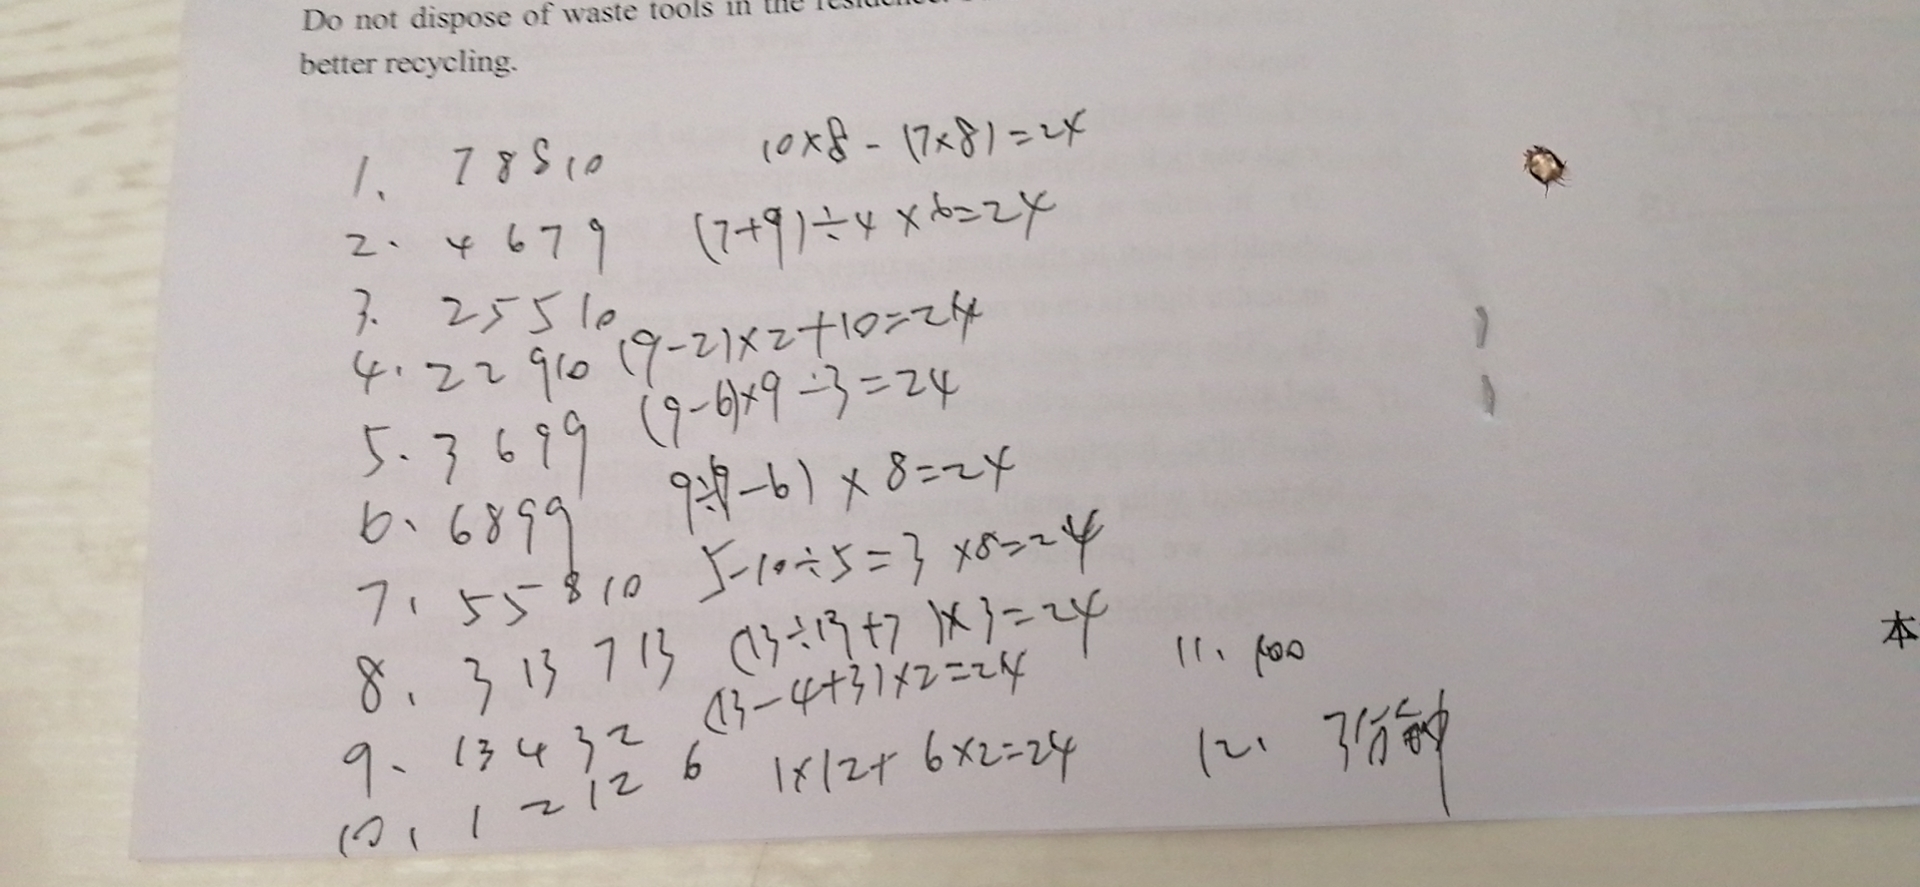 Do not dispose of waste tools in the
better recycling.
1. 7 8 8 10 10×8-(7×8)=24
2. 4 6 7 9 (7+9)÷4×6=24
3. 2 5 5 10
4. 2 2 9 10 (9-2)×2+10=24
5. 3 6 9 9 (9-6)×9÷3=24
6. 6 8 9 9 9÷(9-6)×8=24
7. 5 5 8 10 5-10÷5=3×8=24
8. 3 13 7 13 (13÷13+7)×3=24
9. 13 4 3 2 (13-4+3)×2=24
10. 1 2 12 6 1×12+6×2=24
11. 100
12. 3分钟
本